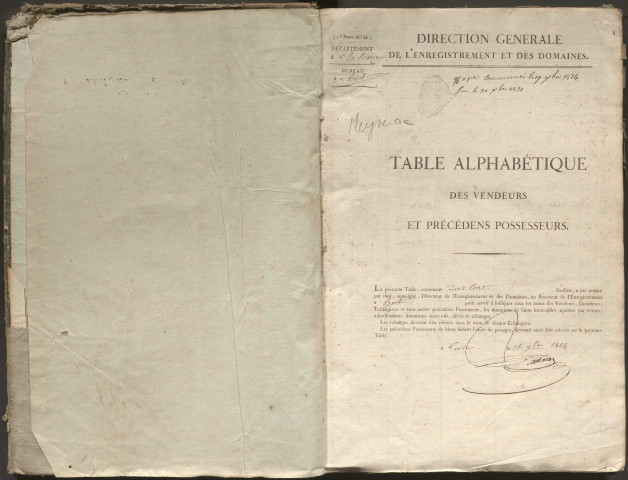 DÉPARTEMENT
BUREAU
DIRECTION GÉNÉRALE
DE L'ENREGISTREMENT ET DES DOMAINES.
commencé le 1824
fini le
Meymac
TABLE ALPHABÉTIQUE
DES VENDEURS
ET PRÉCÉDENS POSSESSEURS.
La présente Table, contenant deux cent feuillets, a été remise
par moi, soussigné, Directeur de l'Enregistrement et des Domaines, au Receveur de l'Enregistrement
à pour servir à indiquer sous les noms des Vendeurs, Donateurs,
Échangistes et tous autres précédens Possesseurs, les mutations de biens immeubles, opérées par ventes,
adjudications, donations entre-vifs, décès et échanges.
Les échanges devront être relevés sous le nom de chaque Échangiste.
Les précédens Possesseurs de biens faisant l'objet de partages, devront aussi être relevés sur la présente
Table.
à Tulle 1824